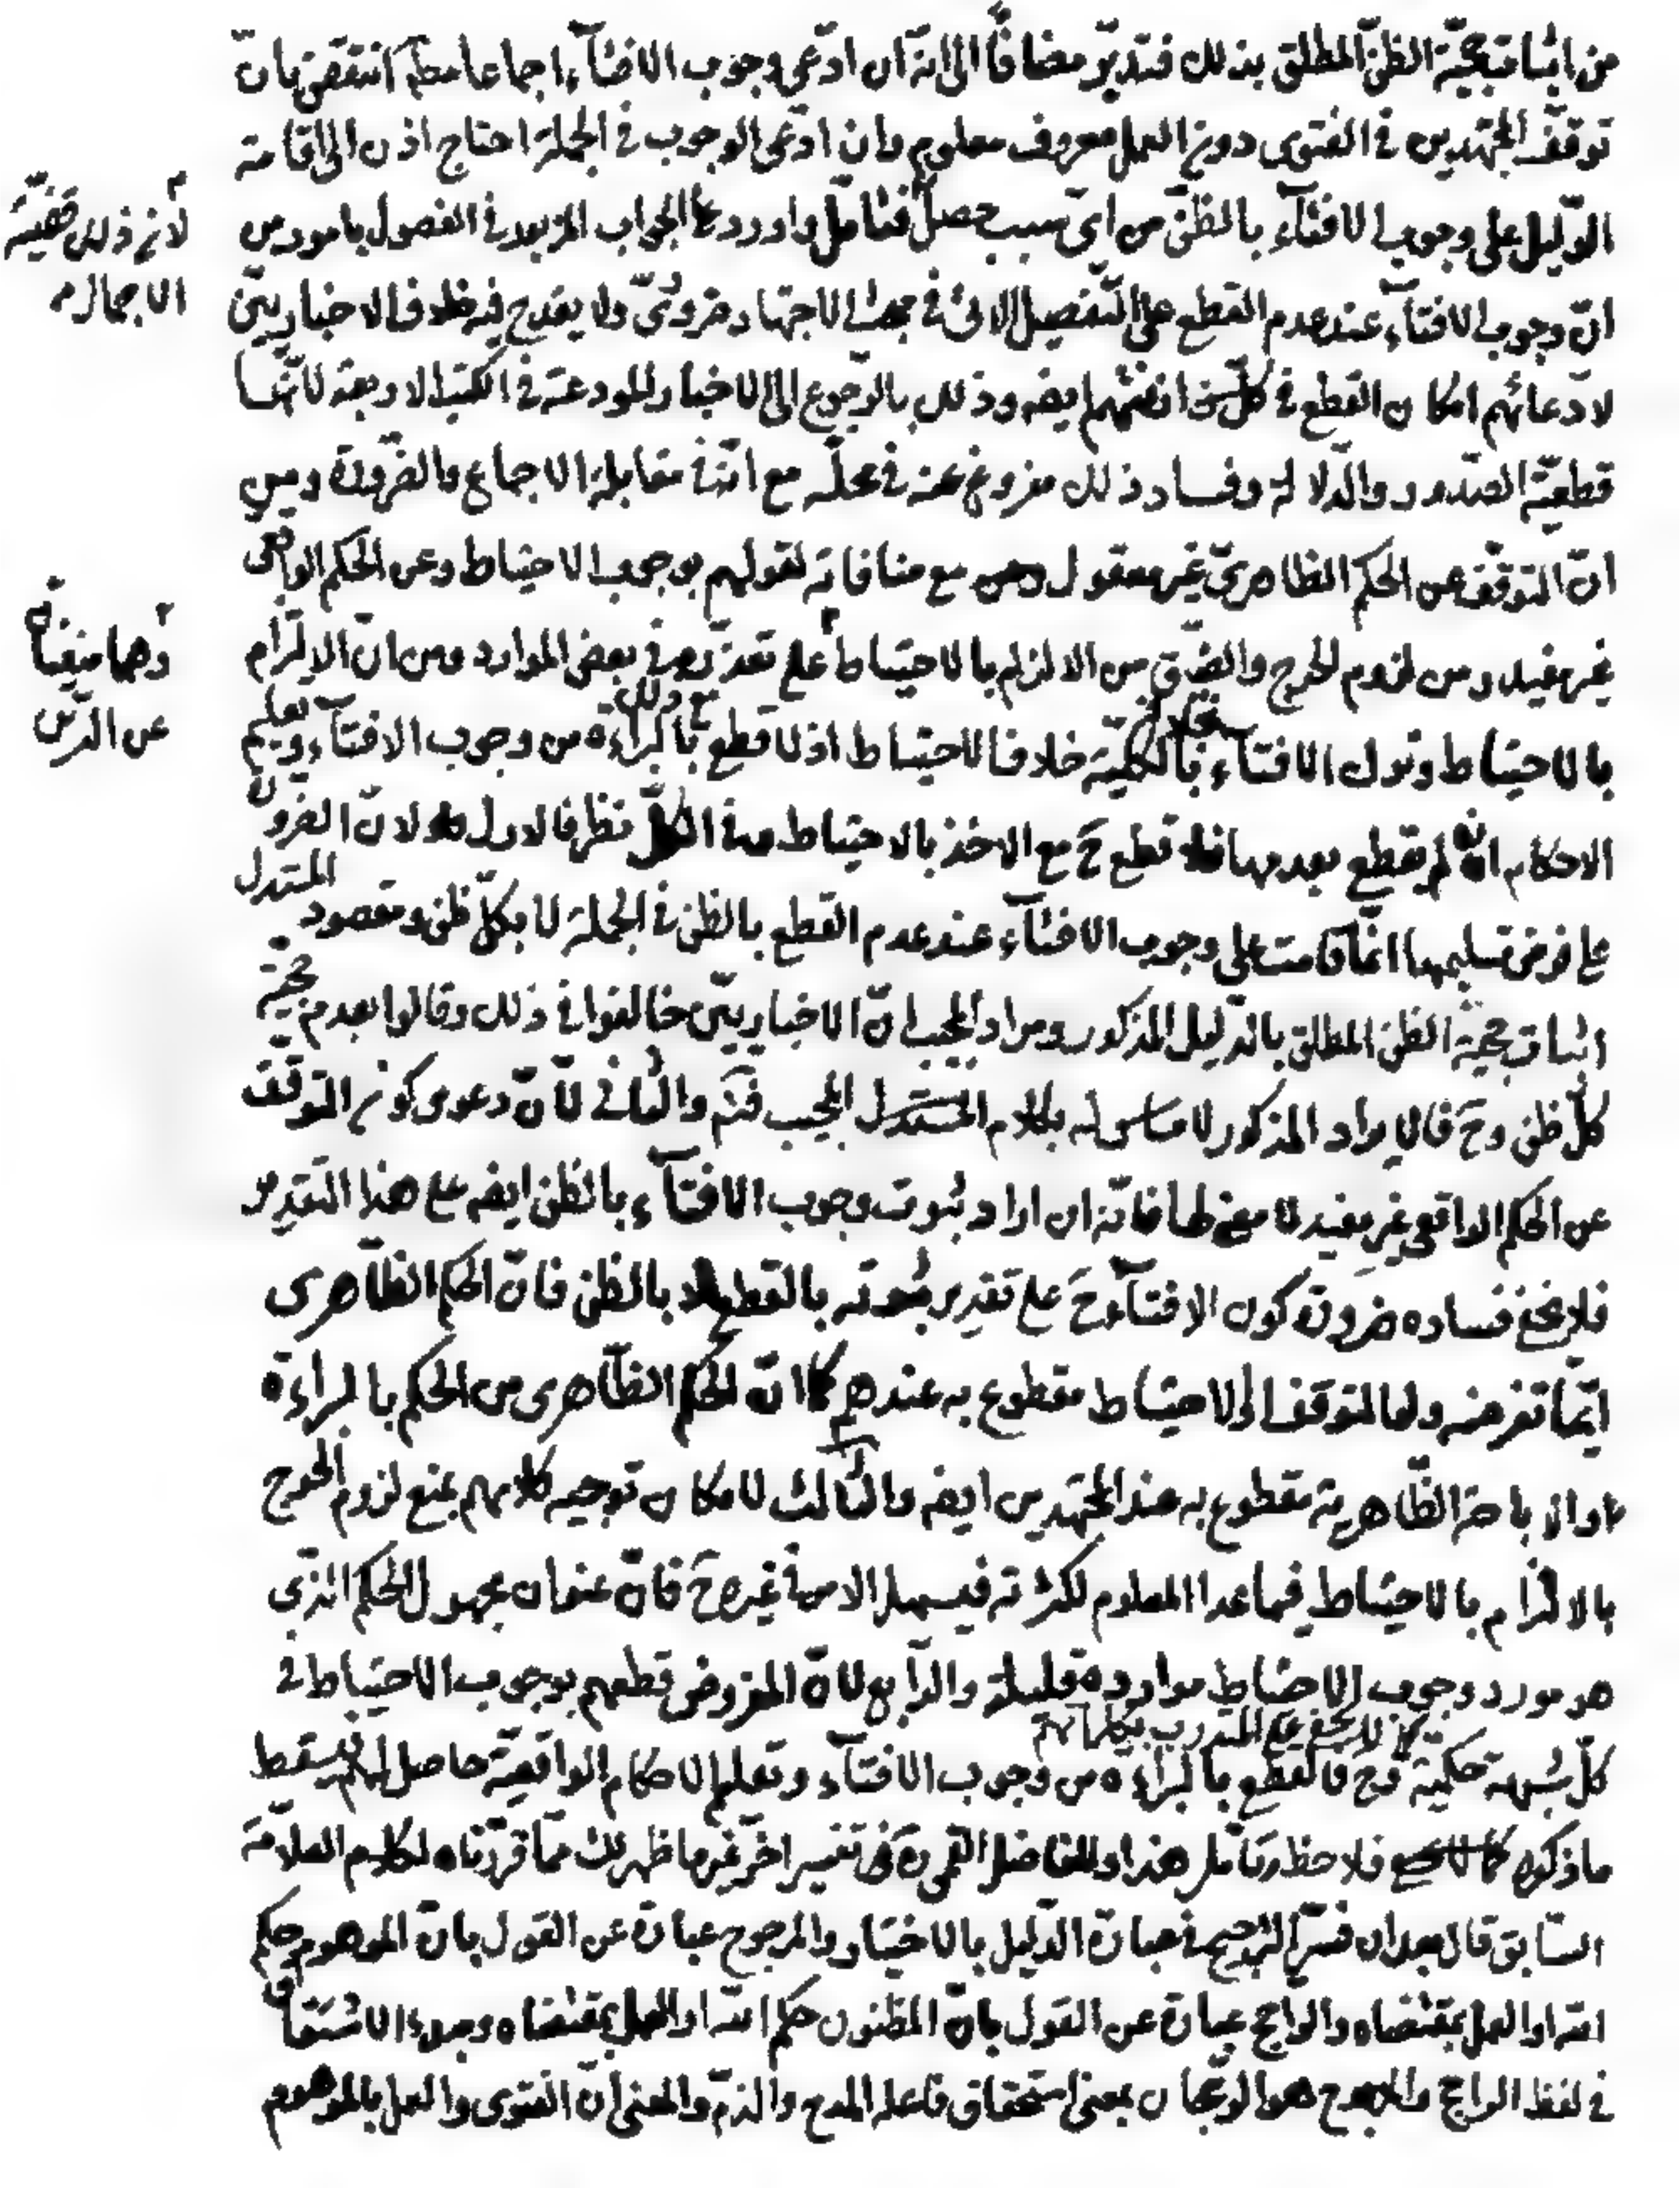 من اثبات حجيّة الظنّ المطلق بذلك فتدبّر مضافاً الى انّه ان ادّعى وجوب الافتآء اجماعا مطلقا انتقض بانّ
توقّف المجتهدين فى الفتوى دون العمل معروف معلوم وان ادّعى الوجوب فى الجملة احتاج اذن الى اقامة
الدّليل على وجوب الافتآء بالظنّ من اىّ سبب حصل فتامّل واورد على الجواب المزبور فى الفصول بامور من
لانّ ذلك قضيّة
الاجمال م
انّ وجوب الافتآء عند عدم القطع على التّفصيل الاتى فى مبحث الاجتهاد ضرورىّ ولا يقدح فيه خلاف الاخباريّين
لادّعائهم امكان القطع فى كلّ ايضه وذلك بالرّجوع الى الاخبار المودعة فى الكتب الاربعة لانّها
قطعيّة الصّدور والدّلالة وفساد ذلك مفروغ عنه فى محلّه مع انّه فى مقابلة الاجماع والضّرورة ومن
انّ التوقّف عن الحكم الظاهرىّ غير معقول مع منافاته لقولهم بوجوب الاحتياط وعن الحكم الواقعى
غير مفيد ومن لزوم الحرج والضّيق من الالزام بالاحتياط على تعذّره فى بعض الموارد ومن انّ الالتزام
وهما منفيّان
عن الدّين
بالاحتياط وترك الافتاء بالكليّة خلاف الاحتياط اذ لا قطع مع ذلك بالبرائة من وجوب الافتآء وتعليم
الاحكام ان لم نقطع بعدمها فلا قطع ح مع الاخذ بالاحتياط وفى الكلّ نظر فالاول لانّ الضرورة
على فرض تسليمها انّما قامت على وجوب الافتآء عند عدم القطع بالظن فى الجملة لا بكلّ ظن ومقصود المستدل
اثبات حجية الظن المطلق بالدّليل المذكور ومراد المجيب انّ الاخباريّين خالفوا فى ذلك وقالوا بعدم حجيّة
كلّ ظن وح فالايراد المذكور لا مساس له بكلام المجيب فتم والثّانى لانّ دعوى كون التوقّف
عن الحكم الواقعى غير مفيد لا معنى لها فانّه ان اراد ثبوت وجوب الافتآء بالظن ايضه على هذا التقدير
فلا يخفى فساده ضرورة كون الافتآء ح على تقدير ثبوته بالقطع لا بالظن فانّ الحكم الظّاهرى
انّما تفرضه ولها التوقف او الاحتياط مقطوع به عندهم كما انّ الحكم الظّاهرى من الحكم بالبراءة
او الاباحة الظّاهرية مقطوع به عند المجتهدين ايضه والثّالث لامكان توجيه كلامهم بمنع لزوم الحرج
بالالتزام بالاحتياط فيما عدا المعلوم لكثرته فيسهل الامر فى غيره ح فانّ عنوان مجهول الحكم الذى
هو مورد وجوب الاحتياط موارده قليلة والرّابع لانّ المفروض قطعهم بوجوب الاحتياط فى
كلّ شبهة حكميّة كما لا يخفى على المتدرب بكلماتهم وح فالقطع بالبراءة من وجوب الافتآء وتعليم الاحكام الواقعيّة حاصل لهم فيسقط
ما ذكره فلاحظ وتأمّل هذا وللفاضل القمى ره تفسير اخر غير ما ظهر لك ممّا قرّرناه لكلام العلاّمة
السّابق قال بعد ان فسّر التّرجيح فى عبارة الدّليل بالاختيار والمرجوح عبارة عن القول بانّ الموهوم حكم
اللّه او العمل بمقتضاه والرّاجح عبارة عن القول بانّ المظنون حكم اللّه او العمل بمقتضاه ومبدء الاشتقاق
فى لفظ الراجح والمرجوح هو الرّجحان بمعنى استحقاق فاعله المدح والذمّ والمعنى انّ الفتوى والعمل بالموهوم